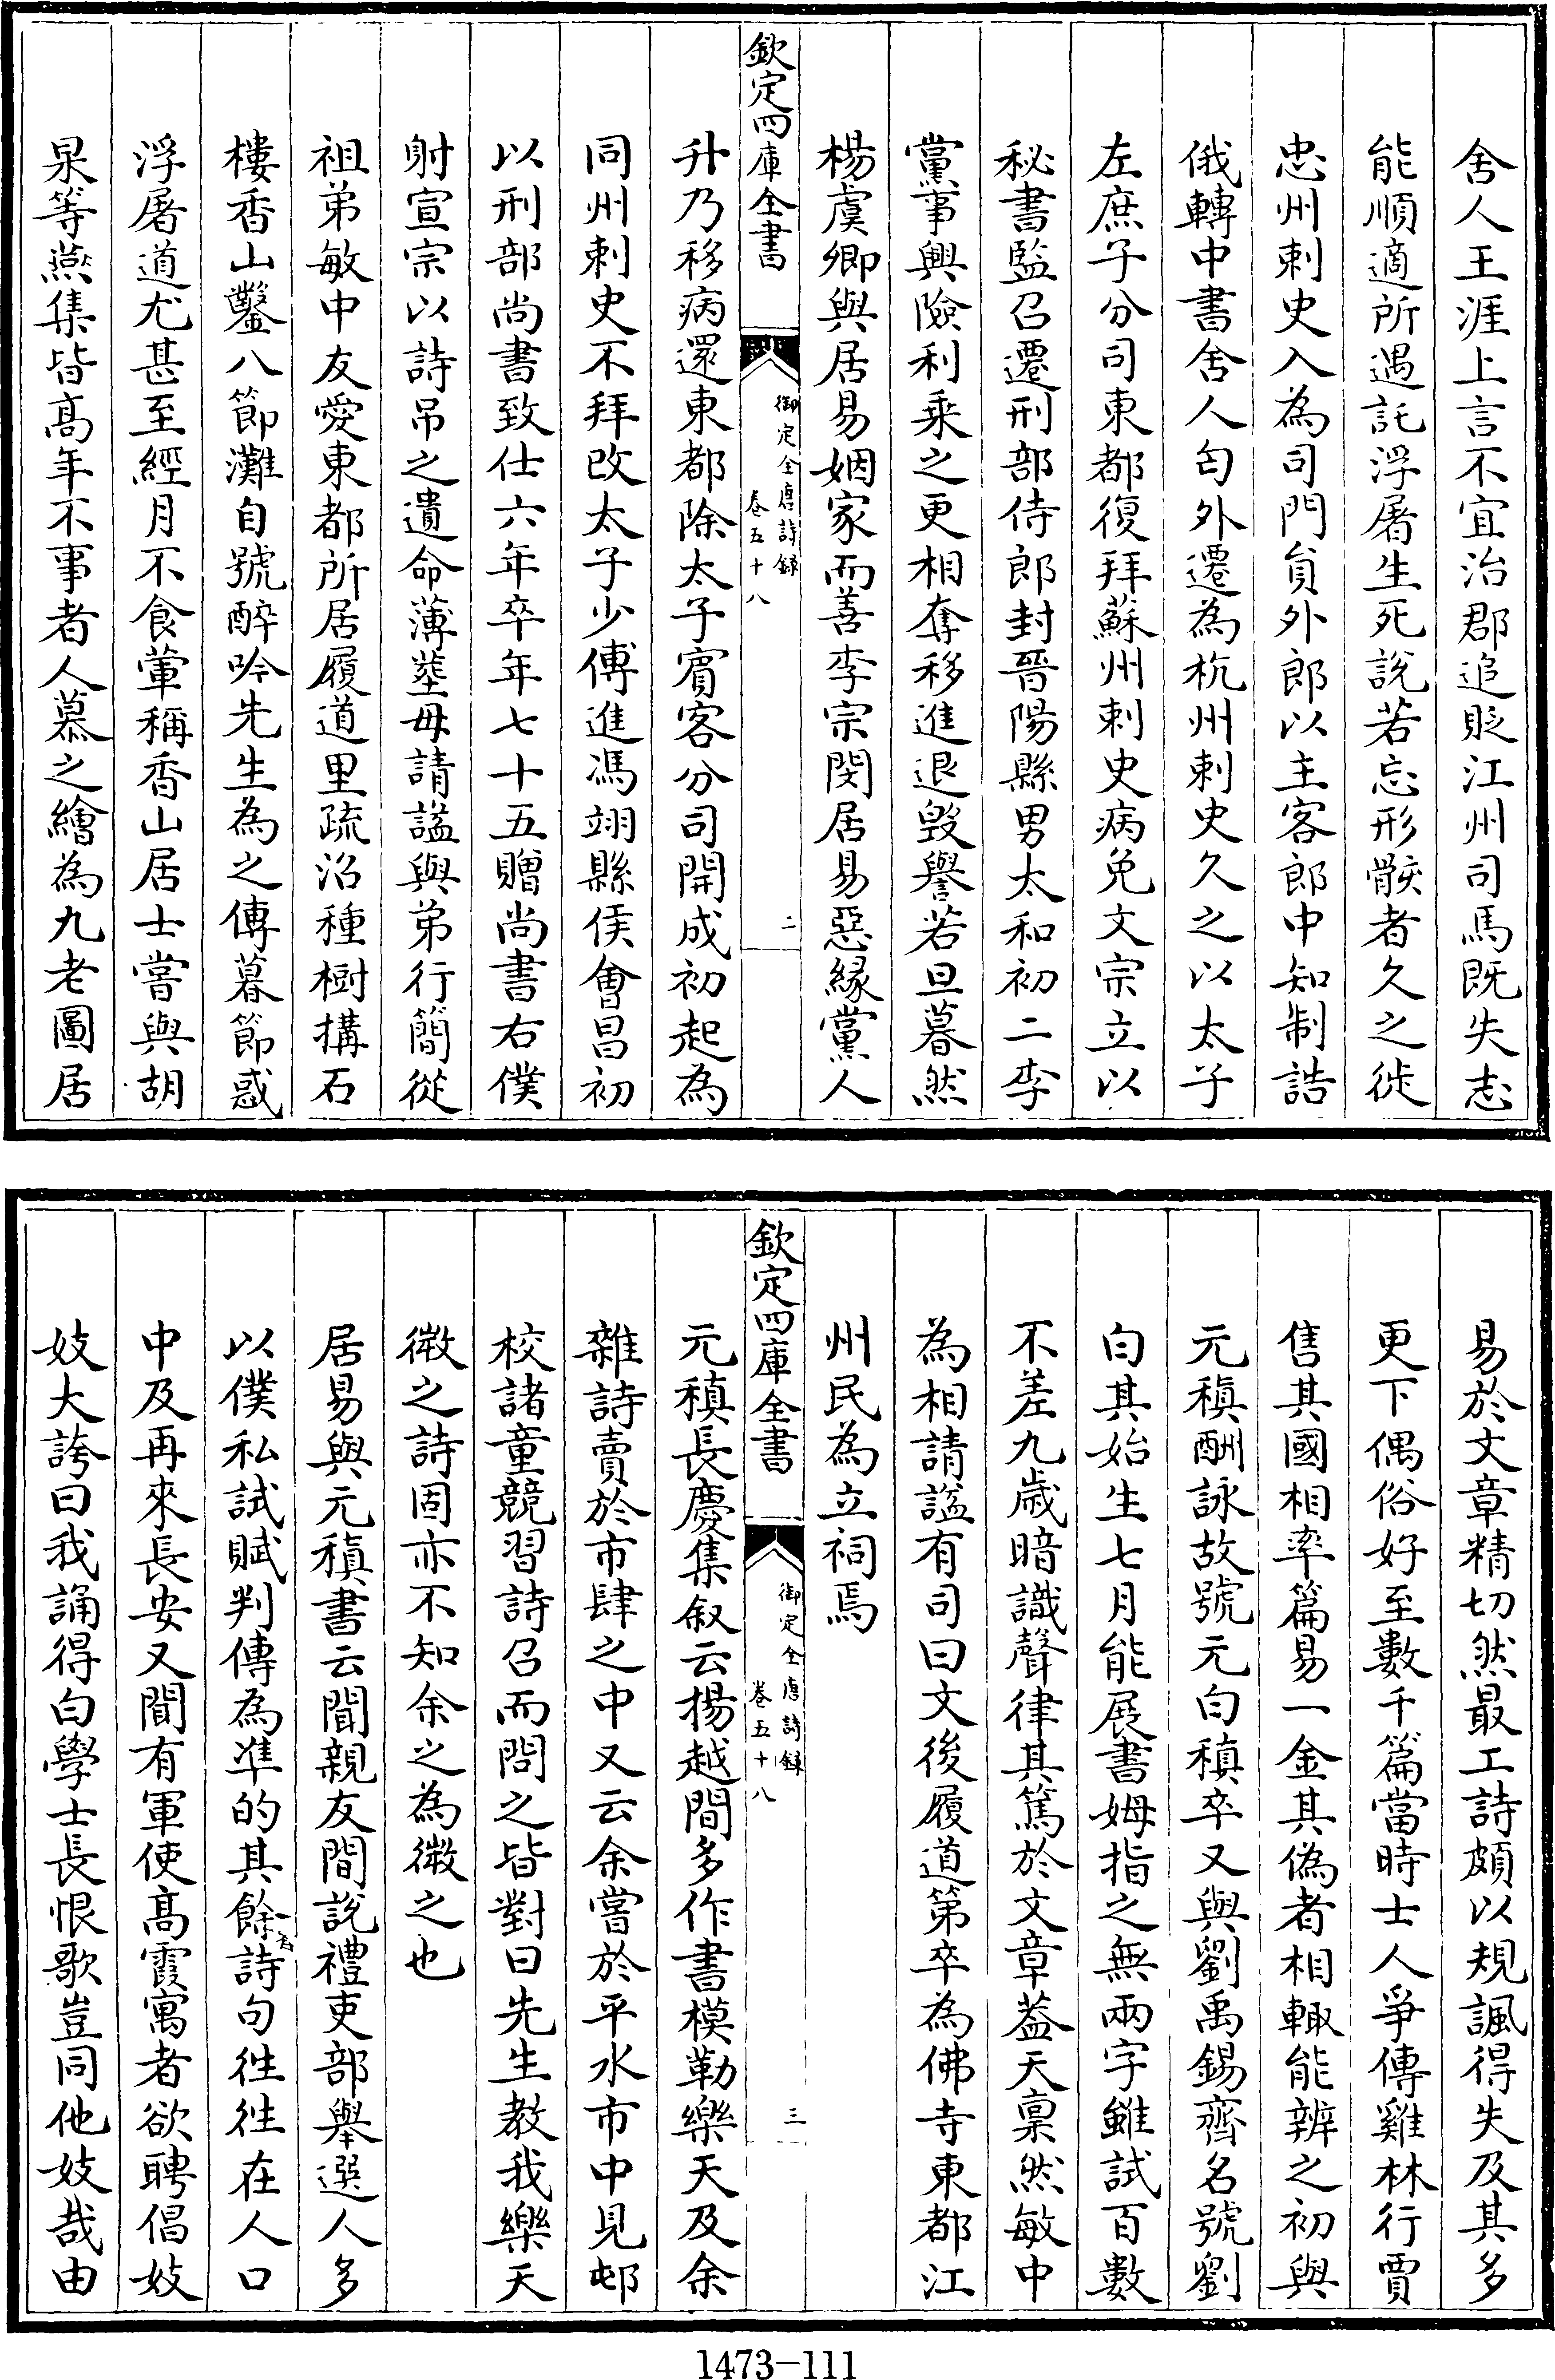 舍人王涯上言不宜治郡追貶江州司馬既失志
能順適所遇託浮屠生死說若忘形骸者久之徙
忠州刺史入為司門貟外郎以主客郎中知制誥
俄轉中書舍人匄外遷為杭州刺史久之以太子
左庶子分司東都復拜蘇州刺史病免文宗立以
秘書監召遷刑部侍郎封晉陽縣男太和初二李
黨事興險利乗之更相奪移進退毀譽若旦暮然
楊虞卿與居易姻家而善李宗閔居易惡緣黨人
欽定四庫全書
御定全唐詩録
卷五十八
二
升乃移病還東都除太子賓客分司開成初起為
同州刺史不拜改太子少傅進馮翊縣侯會昌初
以刑部尚書致仕六年卒年七十五贈尚書右僕
射宣宗以詩吊之遺命薄塟毋請謚與弟行簡從
祖弟敏中友愛東都所居履道里疏沼種樹搆石
樓香山鑿八節灘自號醉吟先生為之傳暮節惑
浮屠道尤甚至經月不食葷稱香山居士嘗與胡
杲等燕集皆高年不事者人慕之繪為九老圖居
易於文章精切然最工詩頗以規諷得失及其多
更下偶俗好至數千篇當時士人爭傳雞林行賈
售其國相率篇易一金其偽者相輙能辨之初與
元稹酬詠故號元白稹卒又與劉禹錫齊名號劉
白其始生七月能展書姆指之無兩字雖試百數
不差九歲暗識聲律其篤於文章葢天稟然敏中
為相請謚有司曰文後履道第卒為佛寺東都江
州民為立祠焉
欽定四庫全書
御定全唐詩録
卷五十八
三
元稹長慶集叙云揚越間多作書模勒樂天及余
雜詩賣於市肆之中又云余嘗於平水市中見邨
校諸童競習詩召而問之皆對曰先生教我樂天
微之詩固亦不知余之為微之也
居易與元稹書云聞親友間說禮吏部舉選人多
以僕私試賦判傳為凖的其餘詩句徃徃在人口
中及再來長安又聞有軍使高霞寓者欲聘倡妓
妓大誇曰我誦得白學士長恨歌豈同他妓哉由
1473-111